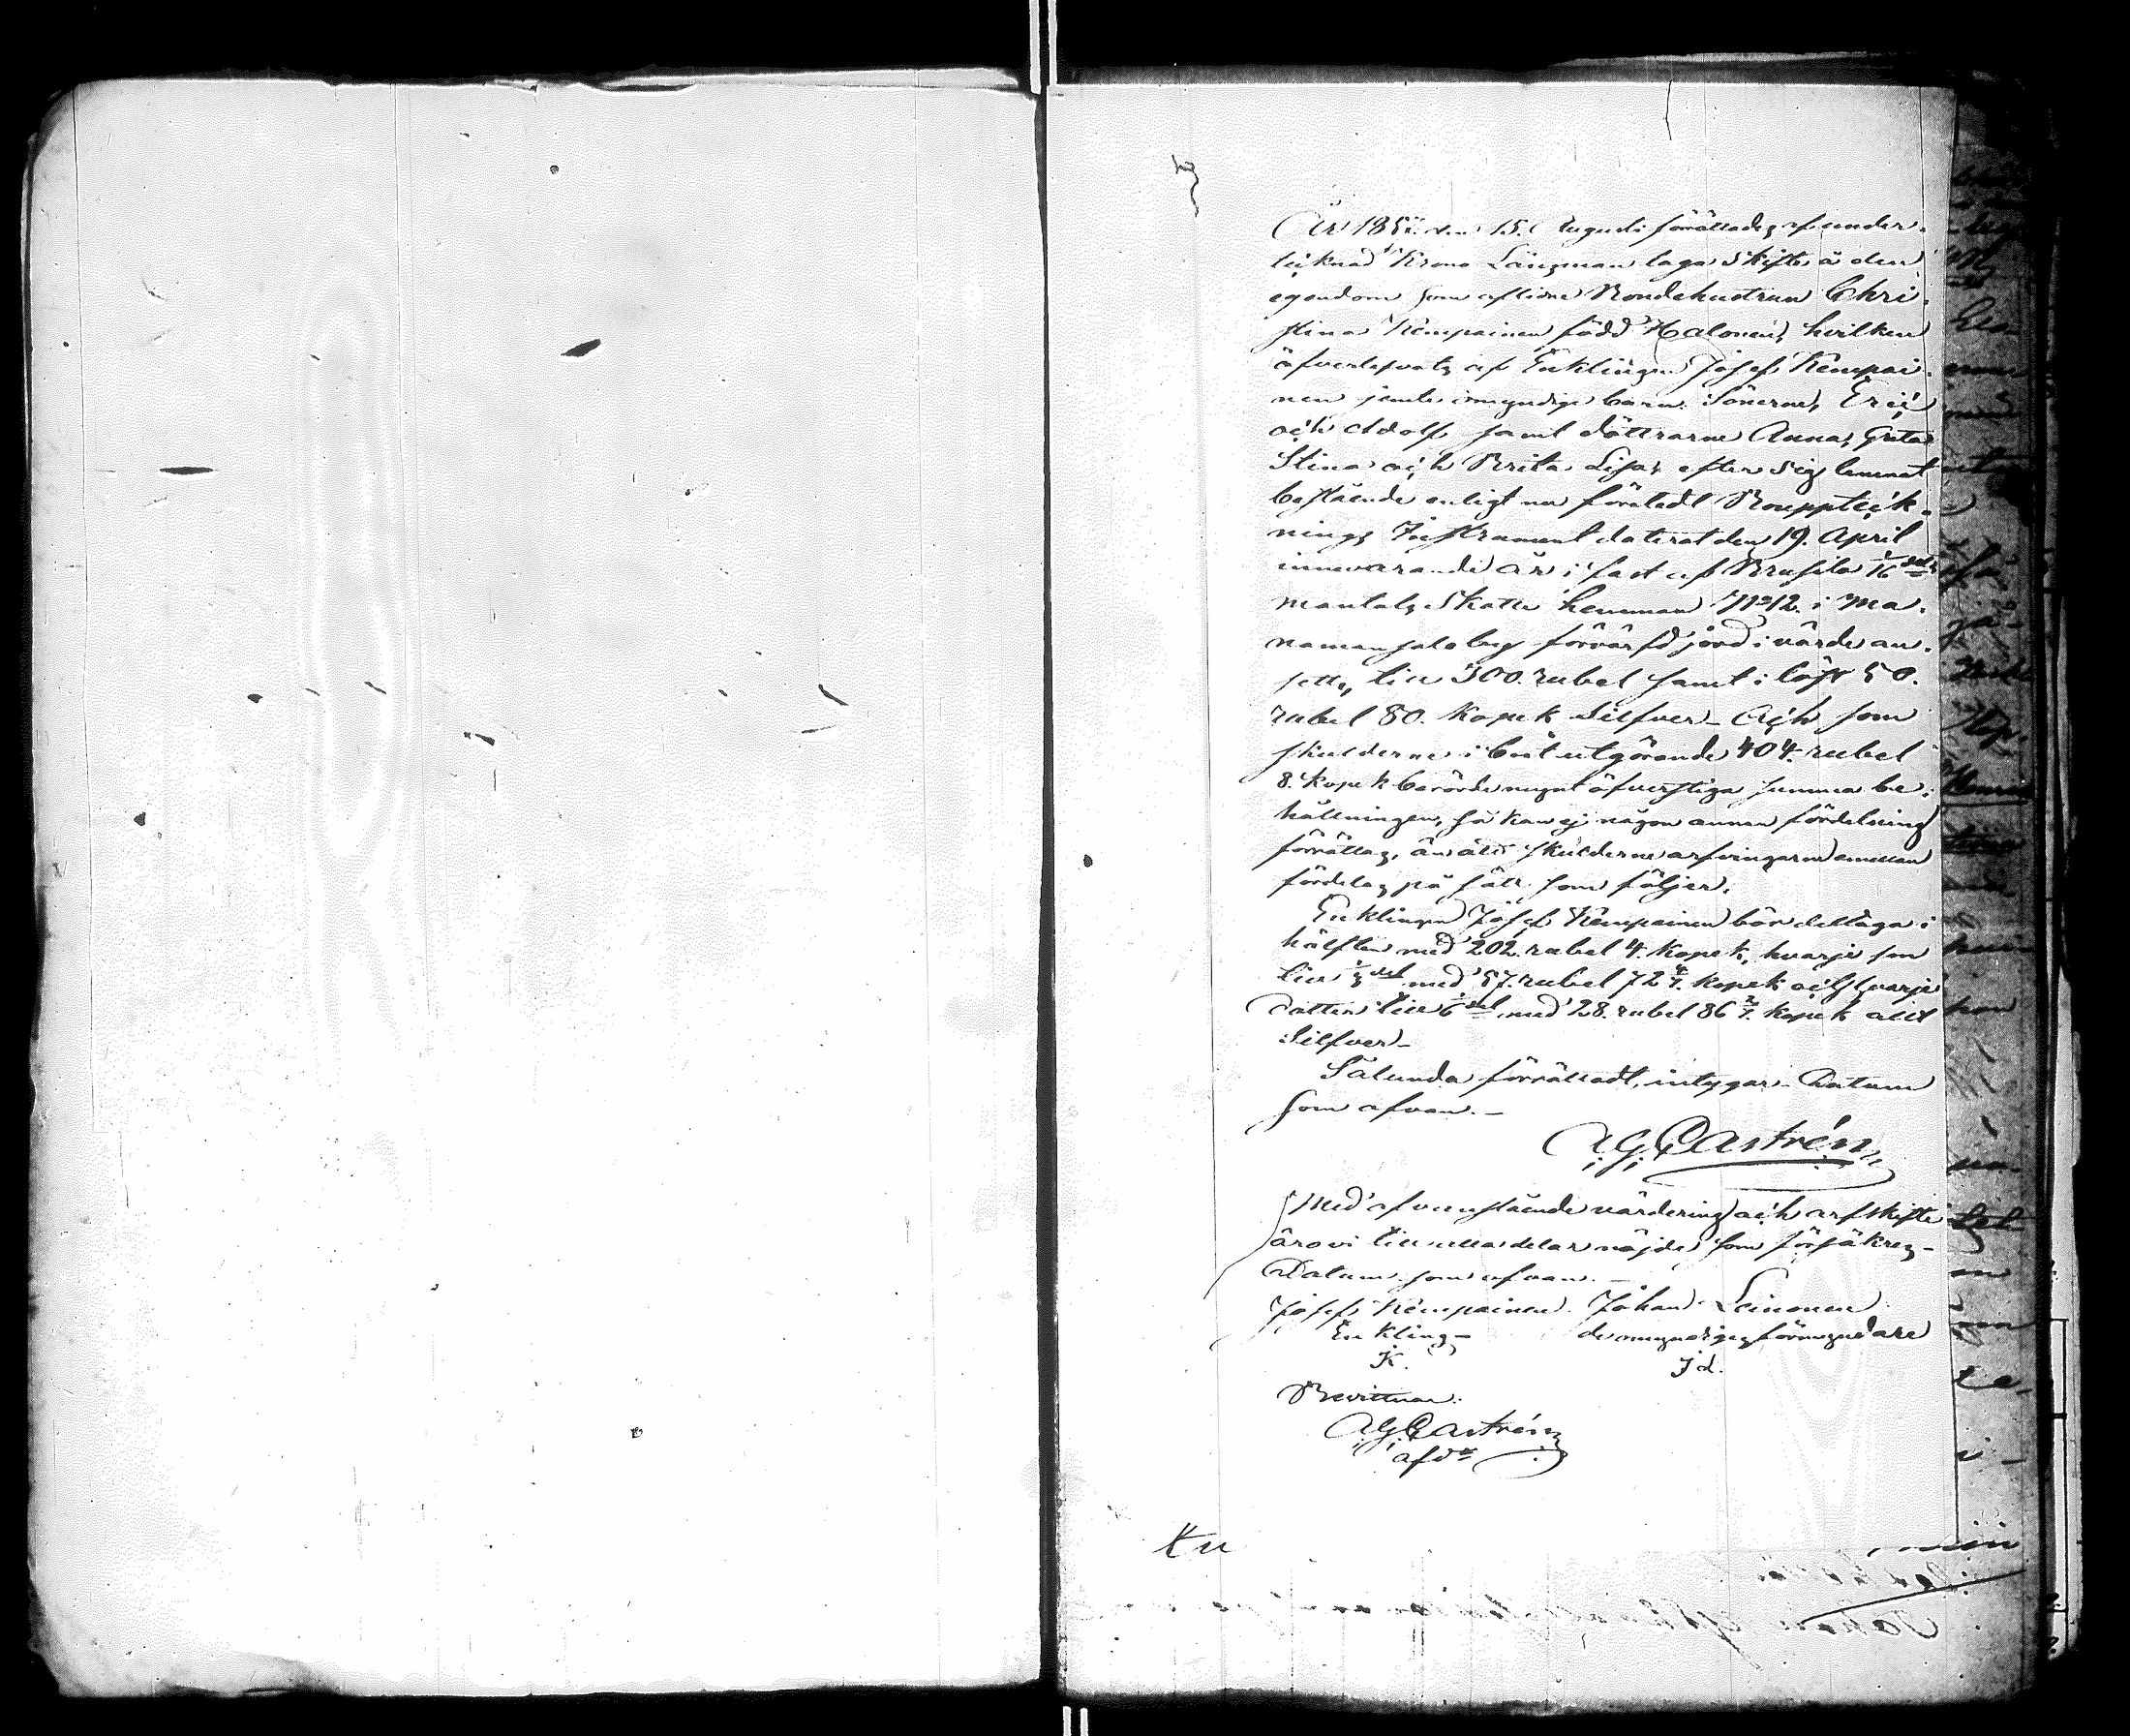 År 185. den 15. Augusti förrättades af under-
tecknad Krono Länsman laga Skifte å den
egendom som aflidne Bondehustrun Chri-
stina Kempainen född Halonen, hvilken
öfverlefvats af Enklingen Josef Kempai-
nen jemte omyndige barn: Sönerne, Eric
och Adolf samt döttrarne Anna, Greta
Stina och Brita Lisa, efter sig lemnat
bestående enligt nu företedt Bouppteck-
nings Instrument daterat den 19. April
innevarande år i fast af 1/16 dels
mantals Skatte hemman No 12. i Ma-
namansalo by förvärfd jord i värde an-
sett, till 300. rubel samt i löst 50.
rubel 80. Kopek Silfver_ Och som
skulderne i boet utgörande 404. rubel
8. Kopek berörde mynt öfverstiga summa be-
hållningen, så kan ej någon annan fördelning
förrättas, än att skulderne arfvingarne emellan
fördelas på sätt som följer.
Enklingen Josef Kempainen bör deltaga i
hälften med 202. rubel 4. Kopek, hvarje son
till 1/3 del med 57. rubel 72 4/7. Kopek och hvarje
Dotter till 1/6 del med 28. rubel 86 2/7. Kopek allt
Silfver_
Sålunda förrättadt, intygar_ Datum
som ofvan._
A. G. Castrén
Med ofvanstående värdering och arfskifte
äro vi till alla delar nöjde, som försäkras_
Datum som ofvan._
Josef Kempainen. Johan Leinonen
Enkling_ de omyndiges förmyndare
K.
Bevittnar:
A. G. Castrén